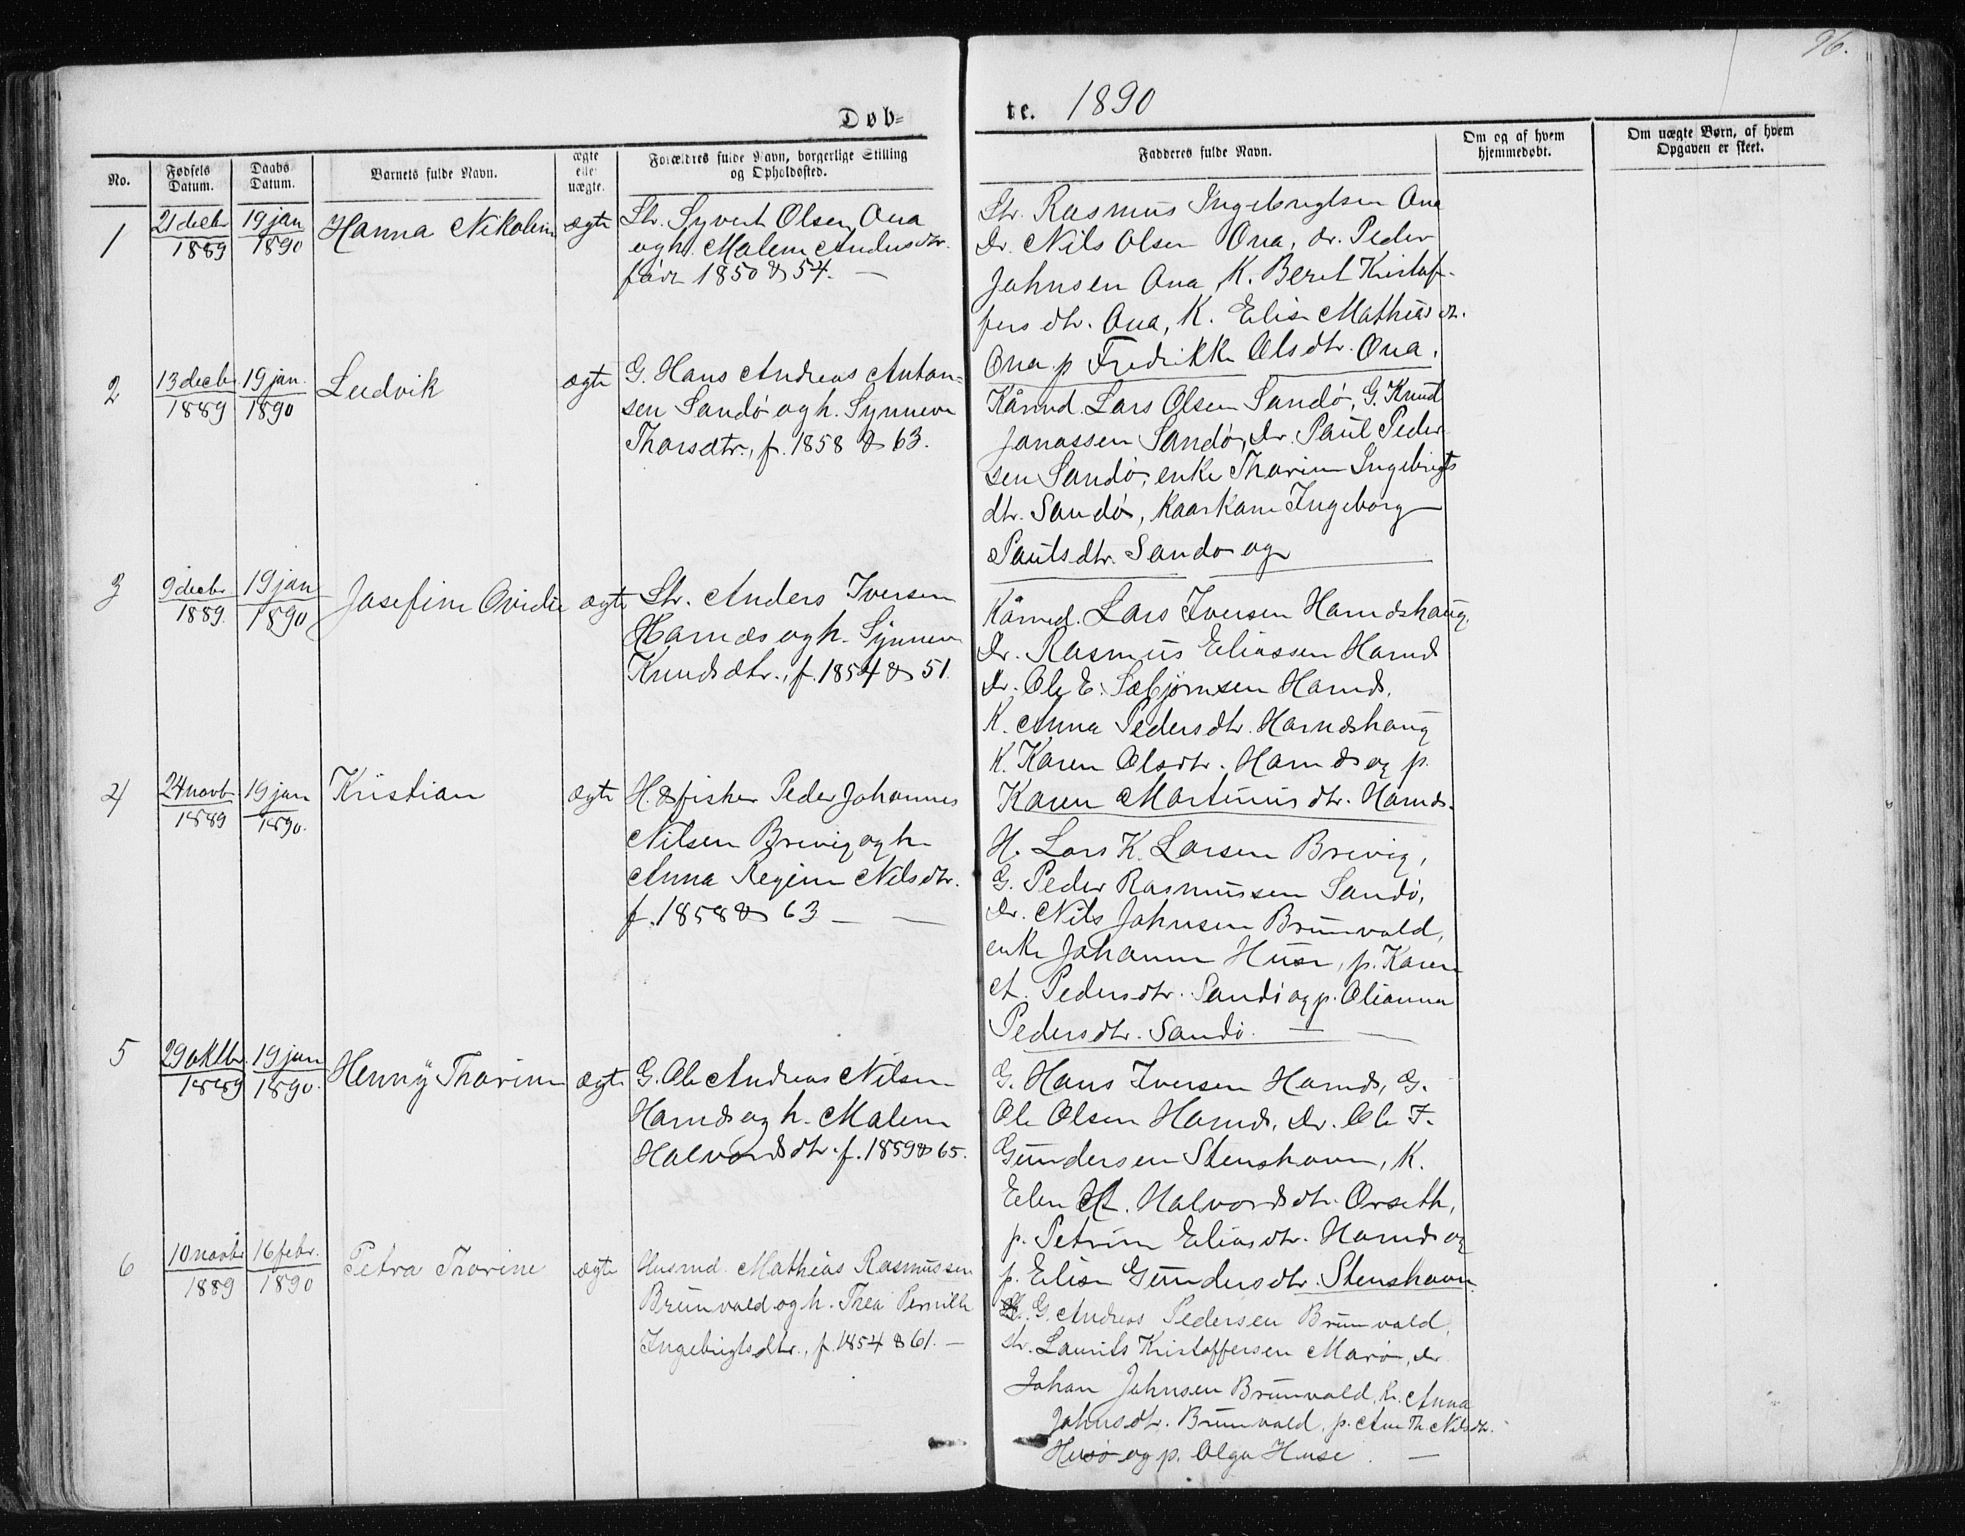 96.
Døb=
te. 1890
No.
Fødsels Datum.
Daabs Datum.
Barnets fulde Navn.
ægte eller uægte.
Forældres fulde Navn, borgerlige Stilling og Opholdssted.
Fadderes fulde Navn.
Om og af hvem hjemmedøbt.
Om uægte Børn, af hvem Opgaven er skeet.
1
21 decbr 1889
19 jan 1890
Hanna Nikoline
ægte
Str. Syvert Olsen Ona
og h. Malene Andersdtr.
født 1850 & 54. —
Str. Rasmus Ingebrigtsen Ona
Dr. Nils Olsen Ona, Dr. Peder
Johnsen Ona, K. Beret Kristof-
fersdtr. Ona, K. Elise Mathiasdt.
Ona p Fredrikke Olsdtr. Ona.
2
13 decbr. 1889
19 jan. 1890
Ludvik
ægte
G. Hans Andreas Anton=
sen Sandø og h. Synneve
Thorsdtr., f. 1858 & 63.
Kårmd. Lars Olsen Sandø, G. Knud
Jonassen Sandø, Dr. Paul Peder
sen Sandø, enke Thorine Ingebrigts
dtr. Sandø, Kaarkone Ingeborg
Paulsdtr. Sandø og
3
9 decbr 1889.
19 jan 1890
Josefine Ovidie
ægte
Str. Anders Iversen
Harnæs og h. Synneve
Knudsdtr., f. 1854 & 51.
Kårmd. Lars Iversen Harndshaug,
Dr. Rasmus Eliassen Harnd
Dr. Ole E. Sæbjørnsen Harnds.
K. Anna Pedersdtr. Harndshaug
K. Karen Olsdtr. Harnds og p.
Karen Martinusdtr. Harnds.
4
24 novbr 1889
19 jan 1890.
Kristian
ægte
H. & fisker Peder Johannes
Nilsen Brevig og h.
Anna Regine Nilsdtr.
f. 1858 & 63 — —
H. Lars K. Larsen Brevig,
G. Peder Rasmussen Sandø,
Dr. Nils Johnsen Brunvold,
enke Johanne Huse, p. Karen
A. Pedersdtr. Sandø og p. Olianna
Pedersdtr. Sandø. — —
5
29 oktbr. 1889
19 jan 1890.
Henny Thorine
ægte
G. Ole Andreas Nilsen
Harnds og h. Malene
Halvordsdtr. f. 1859 & 65.
G. Hans Iversen Harnds, G.
Ole Olsen Harnds, Dr. Ole F.
Gundersen Stenshavn, K.
Elen Halvordsdtr. Orseth,
p. Petrine Eliasdtr. Harnds og
p. Elise Gundersdtr. Stenshavn.
6
10 novbr 1889
16 febr. 1890
Petra Thorine
ægte
Husmd. Mathias Rasmussen
Brunvold og h. Thea Pernille
Ingebrigtsdtr., f. 1854 & 61. —
G. Andreas Pedersen Brunvold,
str. Laurits Kristoffersen Marø, Dr
Johan Johnsen Brunvold, K. Anna
Johnsdtr. Brunvold, p. Ane Th. Nilsdtr.
Husø og p. Olga Huse. —